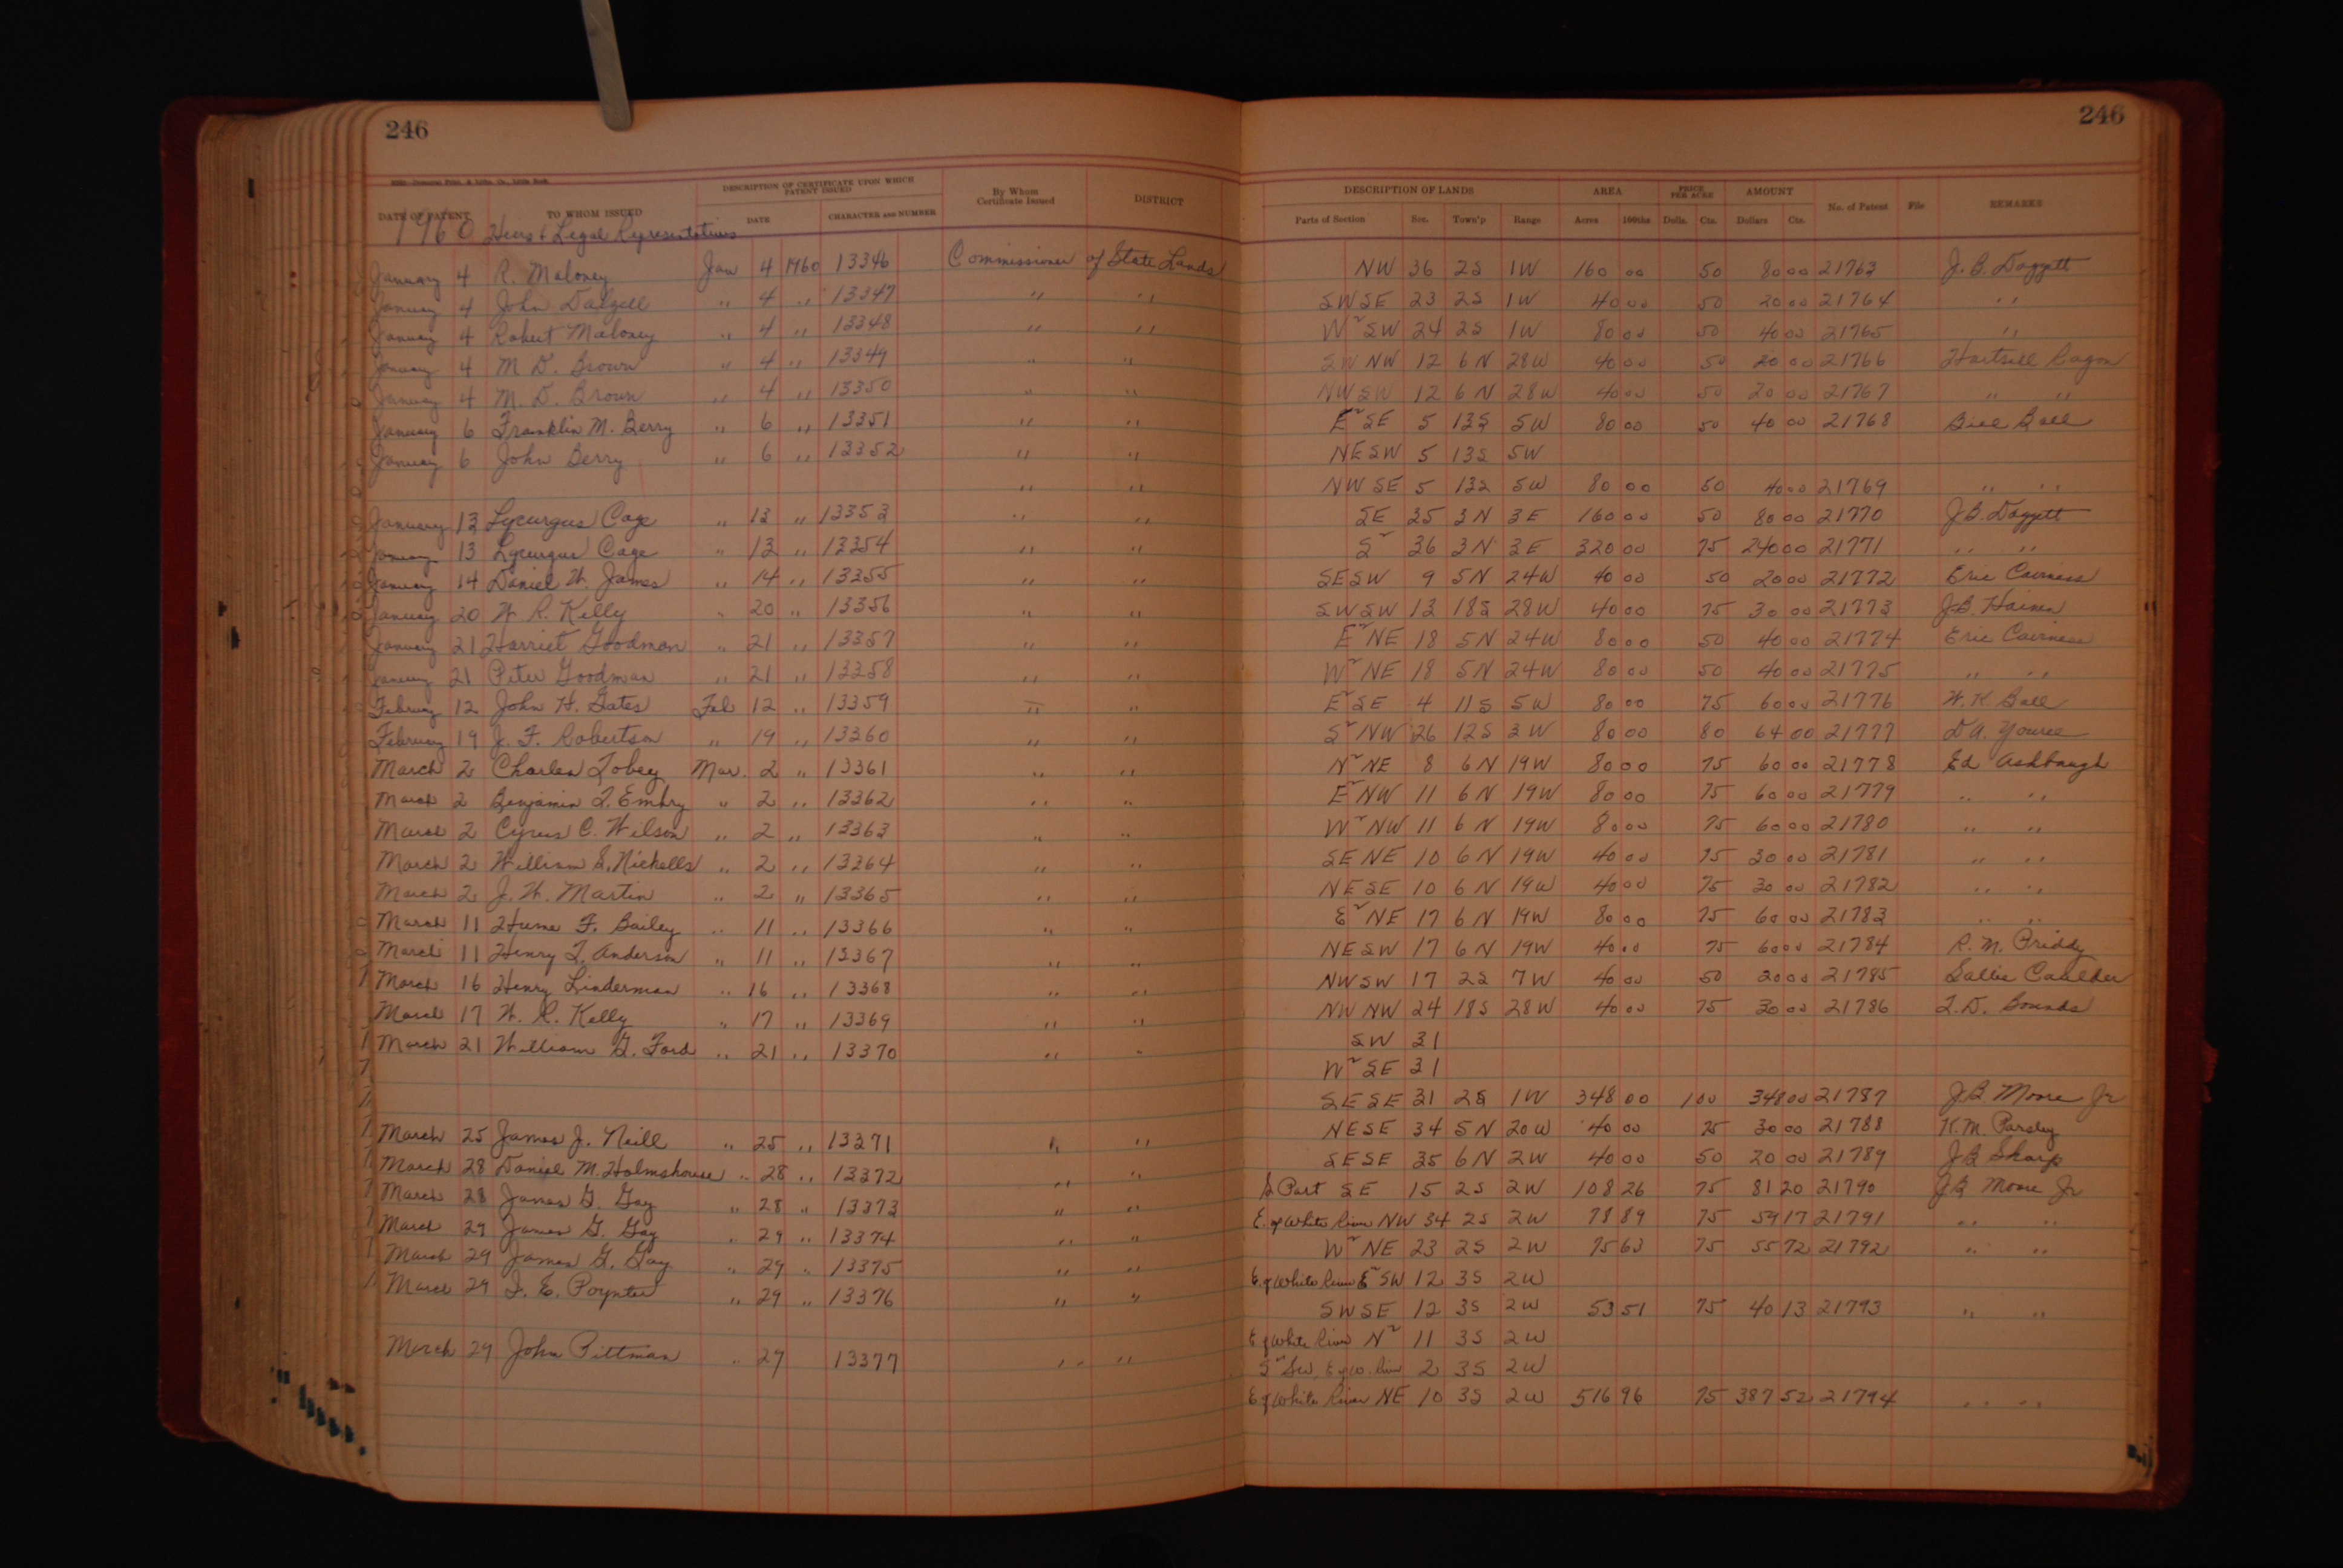 246 246
DESCRIPTION OF CERTIFICATE UPON WHICH PATENT ISSUED By Whom Certificate Issued DISTRICT DESCRIPTION OF LANDS AREA PRICE PER ACRE AMOUNT No. of Patent File REMARKS
DATE OF PATENT TO WHOM ISSUED DATE CHARACTER AND NUMBER Parts of Section Sec. Town'p Range Acres 100ths Dolls. Cts. Dollars Cts.
1960 Heirs & Legal Representatives
January 4 R. Maloney Jan 4 1960 13346 Commissioner of State Lands NW 36 2S 1W 160 00 50 80 00 21763 J. B. Daggett
January 4 John Dalzell " 4 " 13347 " " SWSE 23 2S 1W 40 00 50 20 00 21764 " "
January 4 Robert Maloney " 4 " 13348 " " W2SW 24 2S 1W 80 00 50 40 00 21765 " "
January 4 M. D. Brown " 4 " 13349 " " SWNW 12 6N 28W 40 00 50 20 00 21766 Hartsell Ragon
January 4 M. D. Brown " 4 " 13350 " " NWSW 12 6N 28W 40 00 50 20 00 21767 " "
January 6 Franklin M. Berry " 6 " 13351 " " E2SE 5 13S 5W 80 00 50 40 00 21768 Bill Ball
January 6 John Berry " 6 " 13352 " " NESW 5 13S 5W
" " NWSE 5 13S 5W 80 00 50 40 00 21769 " "
January 13 Lycurgus Cage " 13 " 13353 " " SE 25 3N 3E 160 00 50 80 00 21770 J. B. Daggett
January 13 Lycurgus Cage " 13 " 13354 " " S2 36 3N 3E 320 00 75 240 00 21771 " "
January 14 Daniel W. James " 14 " 13355 " " SESW 9 5N 24W 40 00 50 20 00 21772 Eric Caviness
January 20 W. R. Kelly " 20 " 13356 " " SWSW 13 18S 28W 40 00 75 30 00 21773 J. B. Hainen
January 21 Harriet Goodman " 21 " 13357 " " E2NE 18 5N 24W 80 00 50 40 00 21774 Eric Caviness
January 21 Peter Goodman " 21 " 13358 " " W2NE 18 5N 24W 80 00 50 40 00 21775 " "
February 12 John H. Gates Feb 12 " 13359 " " E2SE 4 11S 5W 80 00 75 60 00 21776 W. K. Ball
February 19 J. F. Robertson " 19 " 13360 " " S2NW 26 12S 3W 80 00 80 64 00 21777 D. A. Youree
March 2 Charles Tobey Mar. 2 " 13361 " " N2NE 8 6N 19W 80 00 75 60 00 21778 Ed Ashbaugh
March 2 Benjamin T. Embry " 2 " 13362 " " E2NW 11 6N 19W 80 00 75 60 00 21779 " "
March 2 Cyrus C. Wilson " 2 " 13363 " " W2NW 11 6N 19W 80 00 75 60 00 21780 " "
March 2 William S. Nickells " 2 " 13364 " " SENE 10 6N 19W 40 00 75 30 00 21781 " "
March 2 J. W. Martin " 2 " 13365 " " NESE 10 6N 19W 40 00 75 30 00 21782 " "
March 11 Hume F. Bailey " 11 " 13366 " " E2NE 17 6N 19W 80 00 75 60 00 21783 " "
March 11 Henry T. Anderson " 11 " 13367 " " NESW 17 6N 19W 40 00 75 60 00 21784 R. M. Priddy
March 16 Henry Linderman " 16 " 13368 " " NWSW 17 2S 7W 40 00 50 20 00 21785 Sallie Caulder
March 17 W. R. Kelly " 17 " 13369 " " NWNW 24 18S 28W 40 00 75 30 00 21786 T. D. Bounds
March 21 William G. Ford " 21 " 13370 " " SW 31
W2SE 31
SESE 31 2S 1W 348 00 1 00 348 00 21787 J. B. Moore Jr
March 25 James J. Neill " 25 " 13371 " " NESE 34 5N 20W 40 00 75 30 00 21788 K. M. Parsley
March 28 Daniel M. Holmshouse " 28 " 13372 " " SESE 35 6N 2W 40 00 50 20 00 21789 J B Sharp
March 28 James G. Gay " 28 " 13373 " " S Part SE 15 2S 2W 108 26 75 81 20 21790 J B Moore Jr
March 29 James G. Gay " 29 " 13374 " " E. of White River NW 34 2S 2W 78 89 75 59 17 21791 " "
March 29 James G. Gay " 29 " 13375 " " W2NE 23 2S 2W 75 63 75 55 72 21792 " "
March 29 I. E. Poynter " 29 " 13376 " " E. of White River E2SW 12 3S 2W
SWSE 12 3S 2W 53 51 75 40 13 21793 " "
March 29 John Pittman " 29 13377 " " E of White River N2 11 3S 2W
S2SW, E of W. River 2 3S 2W
E of White River NE 10 3S 2W 516 96 75 387 52 21794 " "